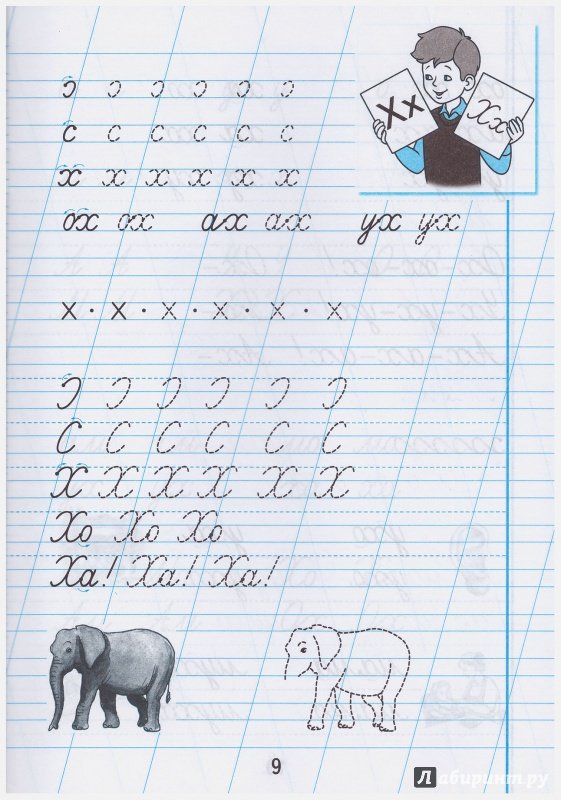 Хх Хх
с с с с с с
х х х х х х
ох ох ах ах ух ух
х · х · х · х · х · х
С С С С С С
Х Х Х Х Х Х
Хо Хо Хо
Ха! Ха! Ха!
9
Лабиринт.ру